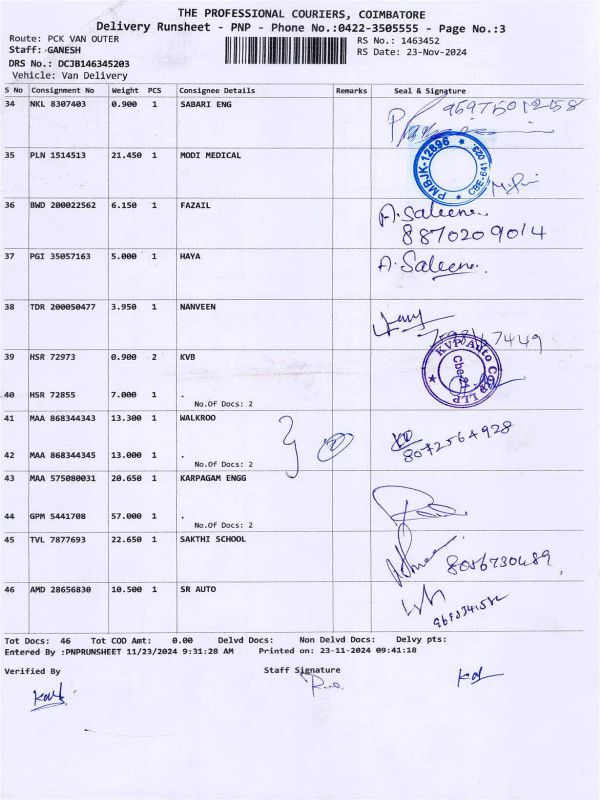 THE PROFESSIONAL COURIERS, COIMBATORE
Delivery Runsheet - PNP - Phone No.:0422-3505555 - Page No.:3
Route: PCK VAN OUTER RS No.: 1463452
Staff: GANESH RS Date: 23-Nov-2024
DRS No.: DCJB146345203
Vehicle: Van Delivery
S No Consignment No Weight PCS Consignee Details Remarks Seal & Signature
34 NKL 8307403 0.900 1 SABARI ENG
35 PLN 1514513 21.450 1 MODI MEDICAL
PMBJK-12896 ★ CBE-641 023. ★
36 BWD 200022562 6.150 1 FAZAIL A. Saleene..
8870209014
37 PGI 35057163 5.000 1 HAYA A. Saleene.
38 TDR 200050477 3.950 1 NANVEEN
39 HSR 72973 0.900 2 KVB
KVP Auto Corp LLP ★
40 HSR 72855 7.000 1 .
No.Of Docs: 2
41 MAA 868344343 13.300 1 WALKROO
8072564928
42 MAA 868344345 13.000 1 .
No.Of Docs: 2
43 MAA 575080031 20.650 1 KARPAGAM ENGG
44 GPM 5441708 57.000 1 .
No.Of Docs: 2
45 TVL 7877693 22.650 1 SAKTHI SCHOOL
8056730489
46 AMD 28656830 10.500 1 SR AUTO
Tot Docs: 46 Tot COD Amt: 0.00 Delvd Docs: Non Delvd Docs: Delvy pts:
Entered By :PNPRUNSHEET 11/23/2024 9:31:28 AM Printed on: 23-11-2024 09:41:18
Verified By Staff Signature